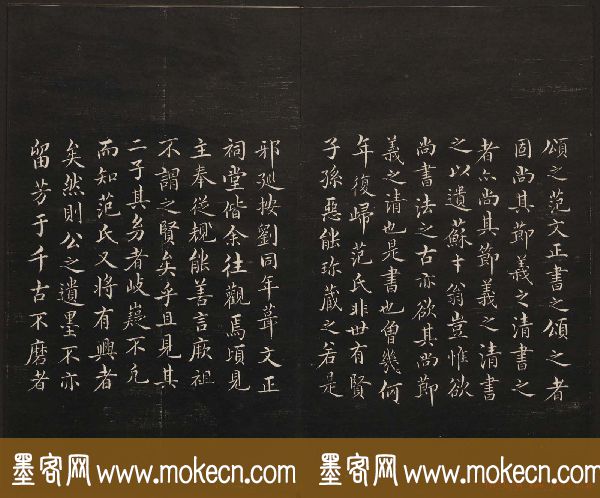 頌之范文正書之頌之者
固尚其節義之清書之
者亦尚其節義之清書
之以遺蘇才翁豈惟欲
尚書法之古亦欲其尚節
義之清也是書也曾幾何
年復歸范氏非世有賢
子孫惡能珍蔵之若是
邪廵按劉同年葺文正
祠堂偕余往觀焉頃見
主奉從規能善言厥祖
不謂之賢矣乎且見其
二子其多者岐嶷不凡
而知范氏又將有興者
矣然則公之遺墨不亦
留芳于千古不磨者
墨客网 www.mokecn.com
墨客网 www.mokecn.com